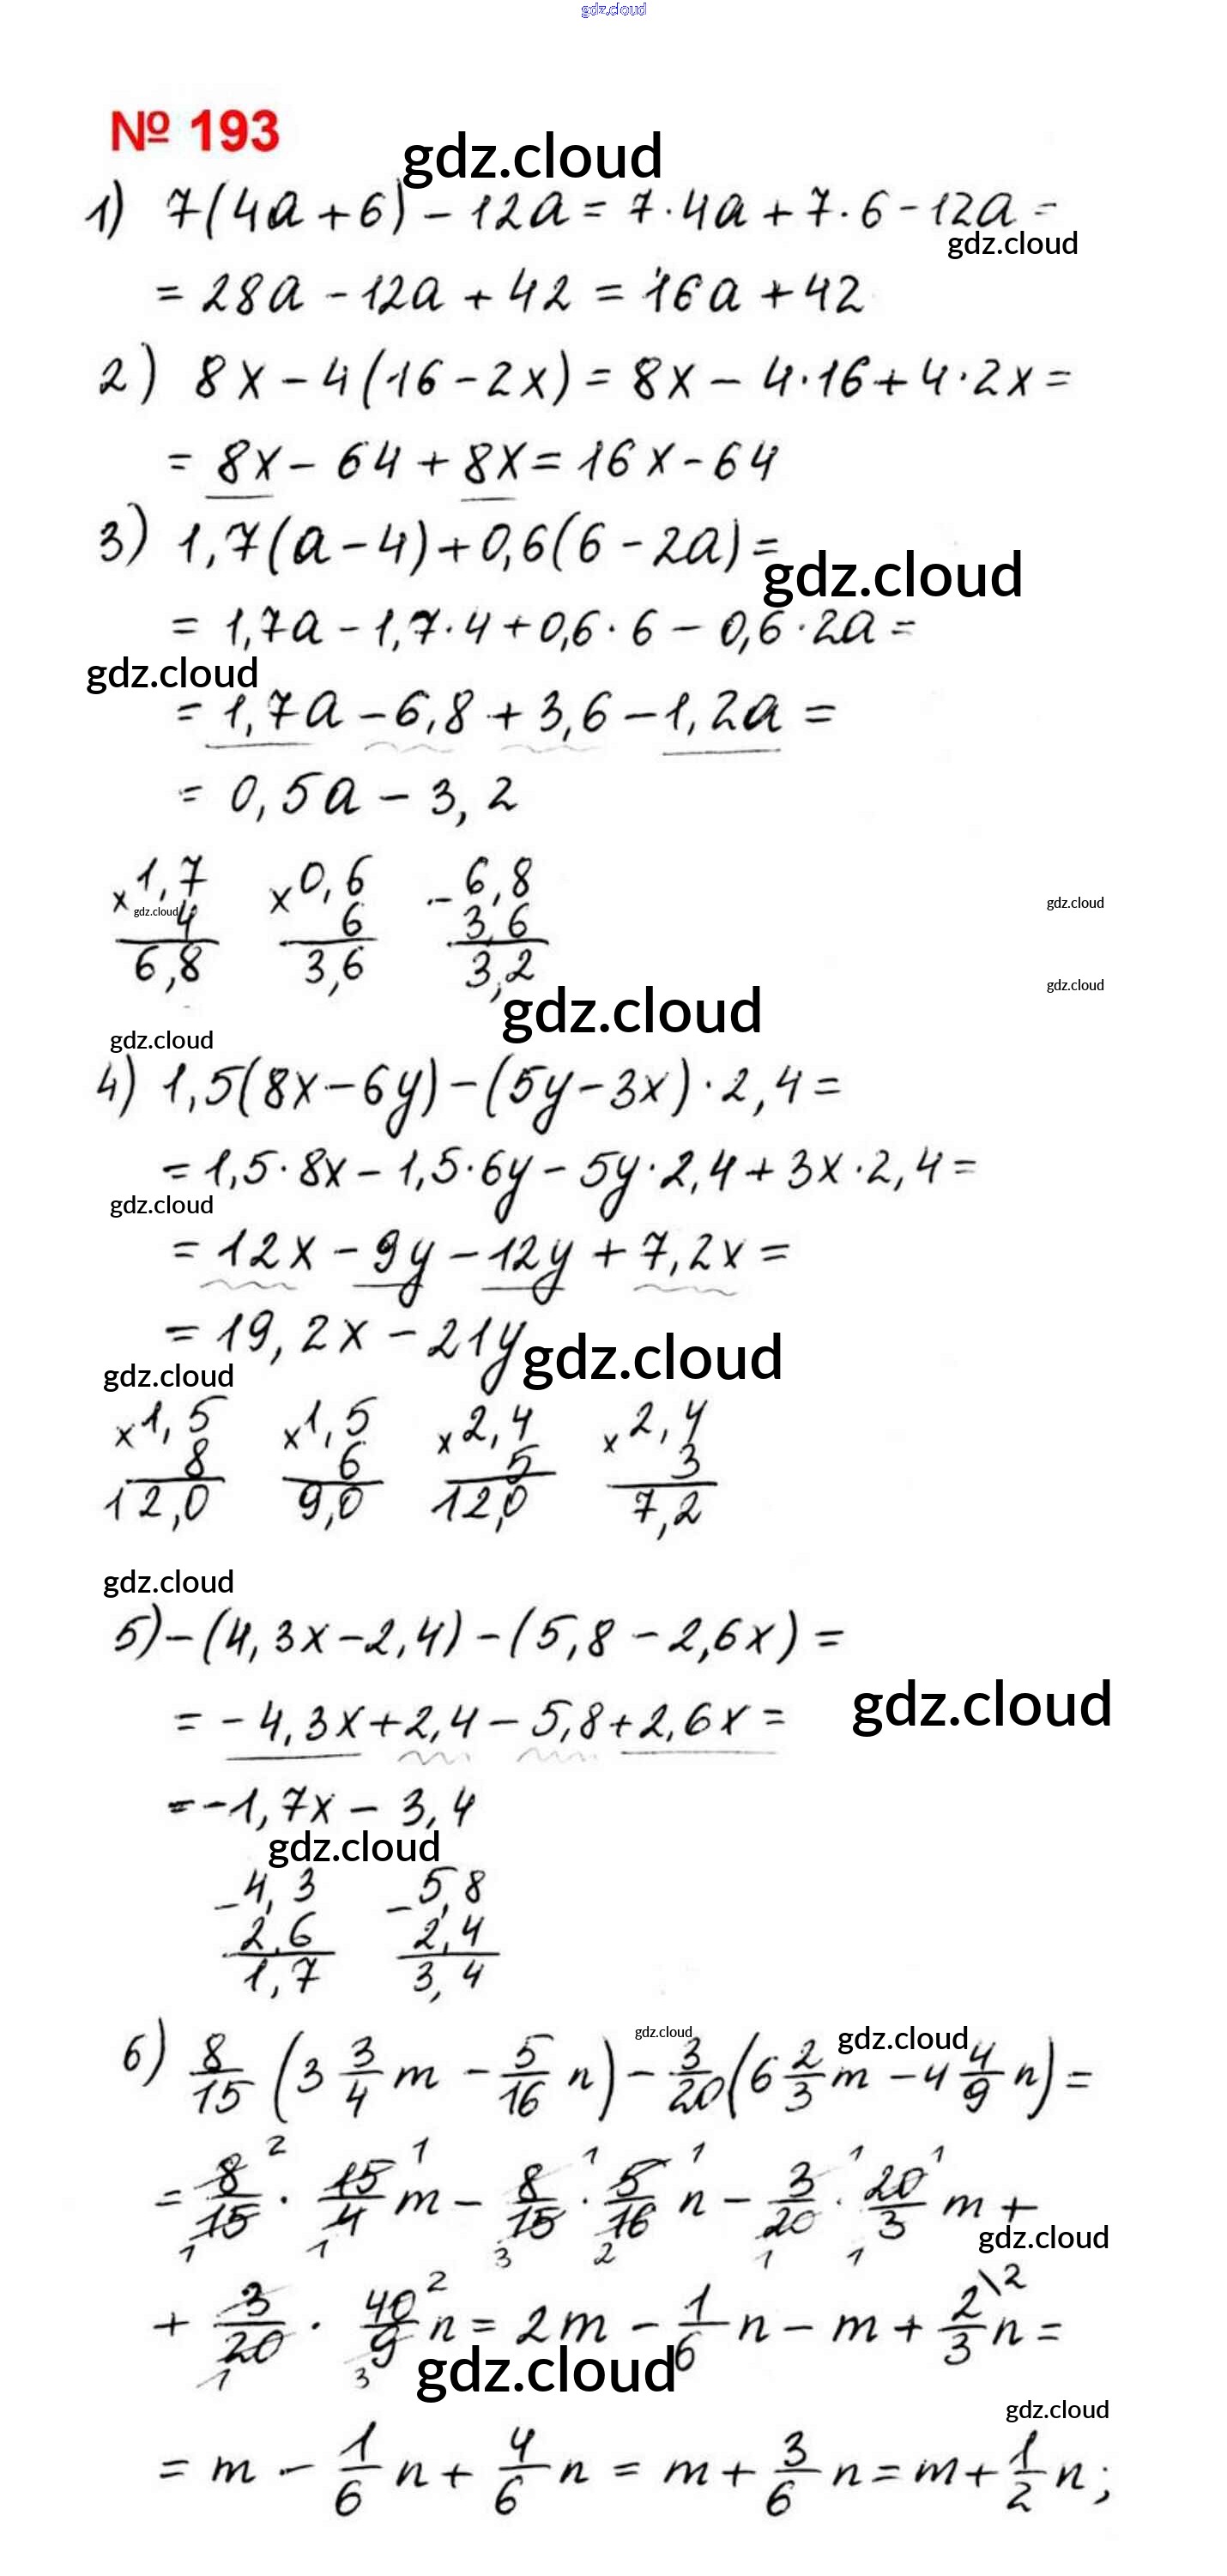 gdz.cloud
№ 193
gdz.cloud
1) 7(4a+6)-12a=7·4a+7·6-12a=
gdz.cloud
=28a-12a+42=16a+42
2) 8x-4(16-2x)=8x-4·16+4·2x=
=8x-64+8x=16x-64
3) 1,7(a-4)+0,6(6-2a)=
gdz.cloud
=1,7a-1,7·4+0,6·6-0,6·2a=
gdz.cloud
=1,7a-6,8+3,6-1,2a=
=0,5a-3,2
x1,7 x0,6 -6,8
gdz.cloud 4 6 3,6 gdz.cloud
6,8 3,6 3,2
gdz.cloud gdz.cloud
gdz.cloud
4) 1,5(8x-6y)-(5y-3x)·2,4=
=1,5·8x-1,5·6y-5y·2,4+3x·2,4=
gdz.cloud
=12x-9y-12y+7,2x=
=19,2x-21y gdz.cloud
gdz.cloud
x1,5 x1,5 x2,4 x2,4
8 6 5 3
12,0 9,0 12,0 7,2
gdz.cloud
5)-(4,3x-2,4)-(5,8-2,6x)=
=-4,3x+2,4-5,8+2,6x= gdz.cloud
=-1,7x-3,4
gdz.cloud
-4,3 -5,8
2,6 2,4
1,7 3,4
gdz.cloud gdz.cloud
6) 8/15 (3 3/4 m - 5/16 n) - 3/20 (6 2/3 m - 4 4/9 n)=
2 1 1 1 1 1
= 8/15 · 15/4 m - 8/15 · 5/16 n - 3/20 · 20/3 m +
1 1 3 2 1 1 gdz.cloud
2 \2
+ 3/20 · 40/9 n = 2m - 1/6 n - m + 2/3 n =
1 3 gdz.cloud
gdz.cloud
= m - 1/6 n + 4/6 n = m + 3/6 n = m + 1/2 n;